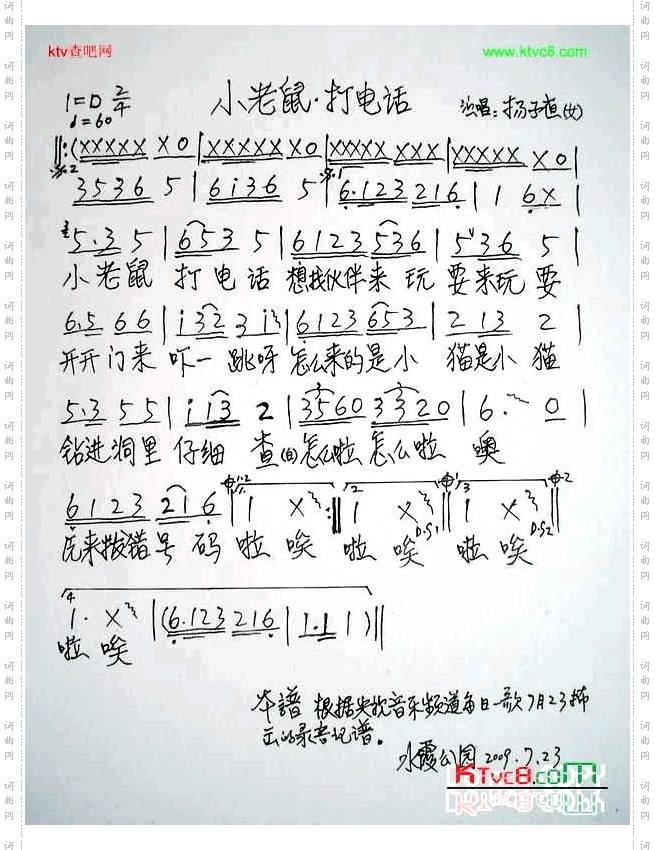 ktv查吧网 www.ktvc8.com
小老鼠·打电话
1=D 2/4
♩=60
演唱：扬子菹(女)
‖:(XXXXX X0|XXXXX X0|XXXXX XXX|XXXXX X0|
3536 5|6i36 5|6.123 216|1 6X|
5.3 5|653 5|6123 536|5 36 5|
小老鼠 打电话 想找伙伴来玩 耍来玩耍
6.5 66|i32 3i|6123 653|2 13 2|
开开门来 吓一跳呀 怎么来的是小 猫是小猫
5.3 55|i i3 2|3560 3320|6. 0|
钻进洞里 仔细 查问怎么啦 怎么啦 噢
6123 216|1 X:‖1 X‖1 X‖
原来拨错号码啦唉 啦唉 啦唉
1. X|(6.123 216|1.1 1)‖
啦唉
本譜 根据央视音乐频道每日一歌7月23播
出的录音记谱。
水霞公园 2009.7.23
KTvc8.com
词曲网